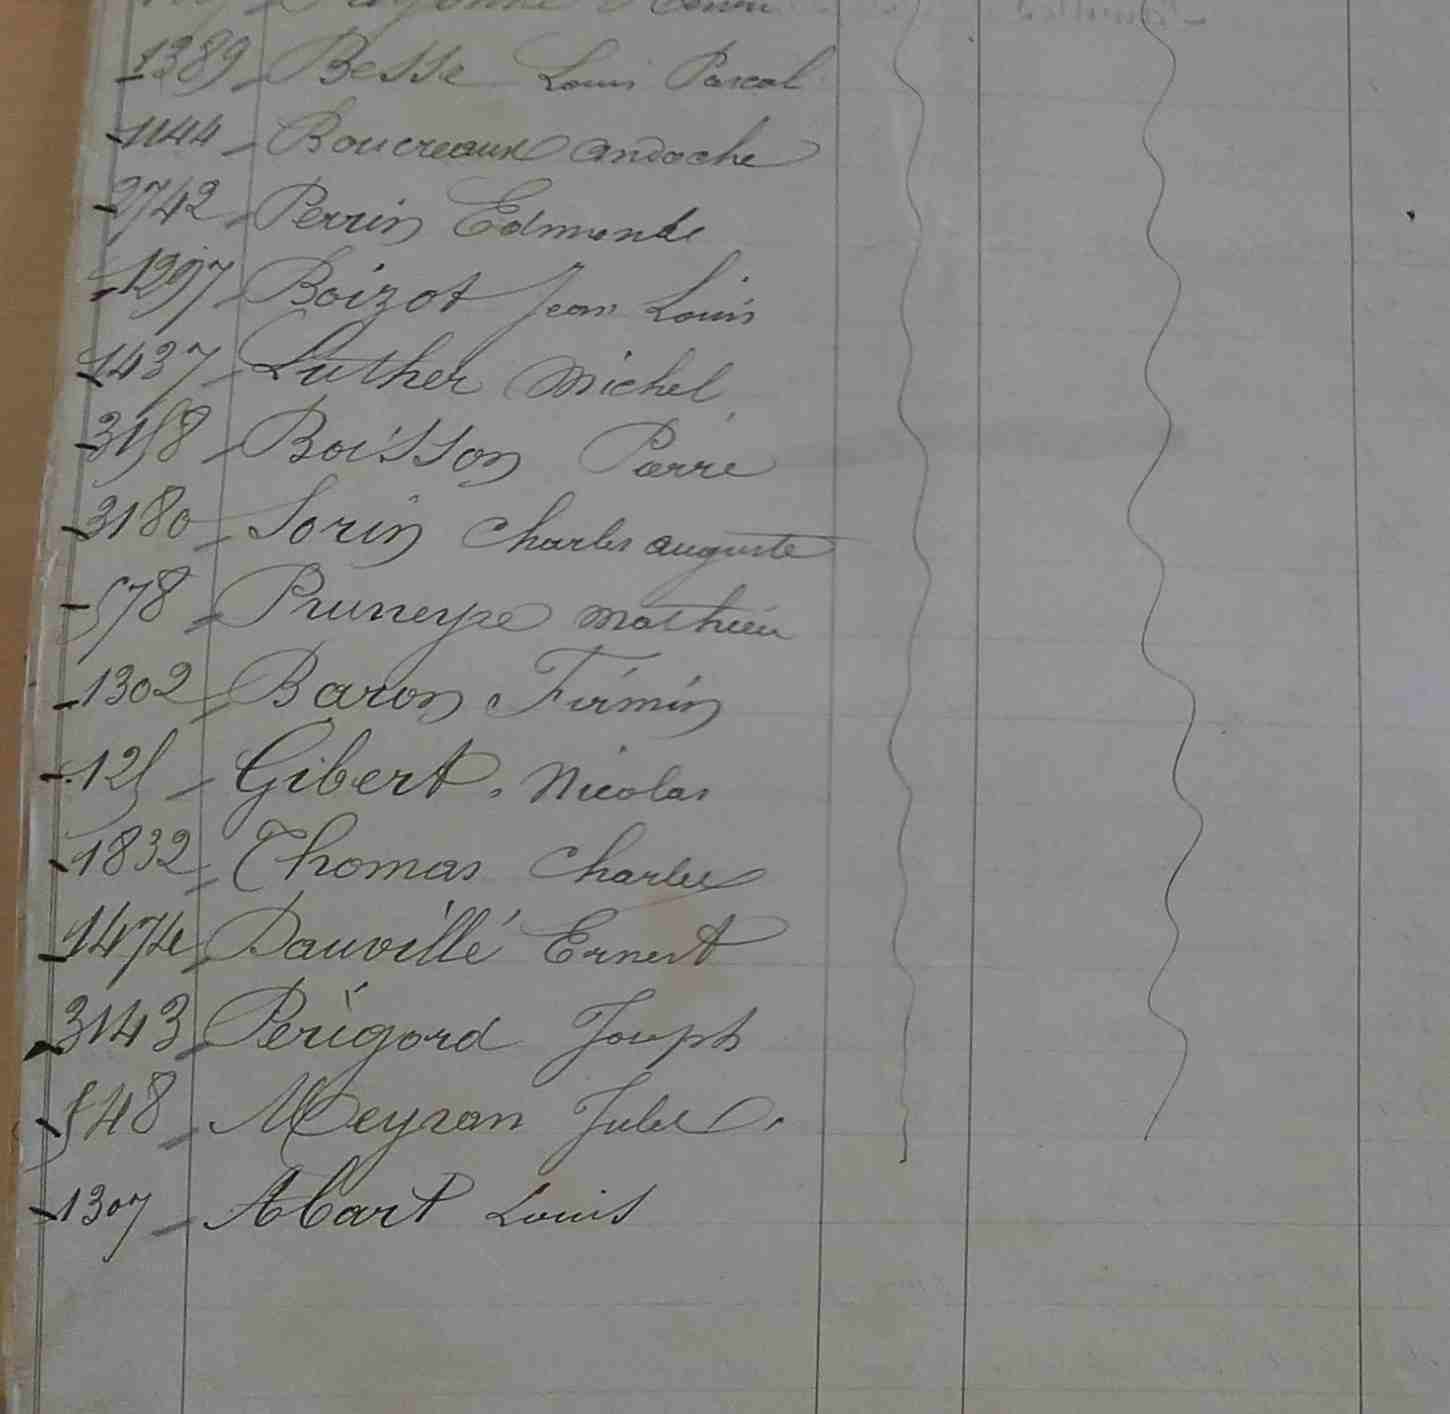 1389 Besse Louis Pascal
1144 Boucreaux andoche
2742 Perrin Edmonde
1297 Boizot Jean Louis
1437 Luther Michel
3158 Boisson Pierre
3180 Sorin Charles auguste
578 Pruneyre Mathieu
1302 Baron Firmin
125 Gibert. Nicolas
1832 Thomas Charles
1474 Dauvillé Ernest
3143 Périgord Joseph
548 Meyran Jules
1307 Abart Louis